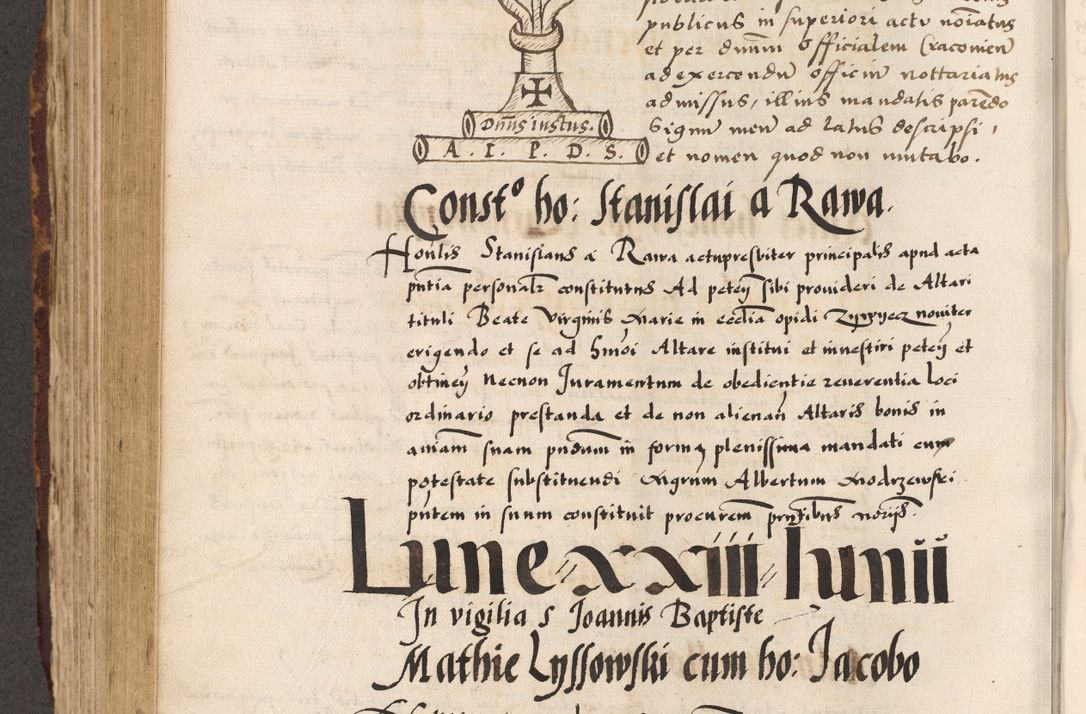 publicus in superiori actu noiatus
et per dnum Officialem Cracovien
ad exercendu officiu nottariatus
admissus, illius mandatis parendo
Signu meu ad latus descripsi,
et nomen quod non mutabo.
Dnus iustus.
A. I. P. D. S.
Constº ho: Stanislai a Rawa.
Honlis Stanislaus a Rawa actu presbiter principalis apud acta
pntia personalr constitutus Ad peten sibi provideri de Altari
tituli Beate Virginis Marie in ecclia opidi noviter
erigendo et se ad hmoi Altare institui et investiri peten et
obtinen Necnon Juramentum de obedientie reverentia loci
ordinario prestanda et de non alienan Altaris bonis in
aniam suam pndum in forma plenissima mandati cum
potestate substituendi Mgrum Albertum Modrzewski
pntem in suum constituit procurem prntibus noriis.
Lune xxiii Iunii
In vigilia s Joannis Baptiste
Mathie Lyssowski cum ho: Jacobo